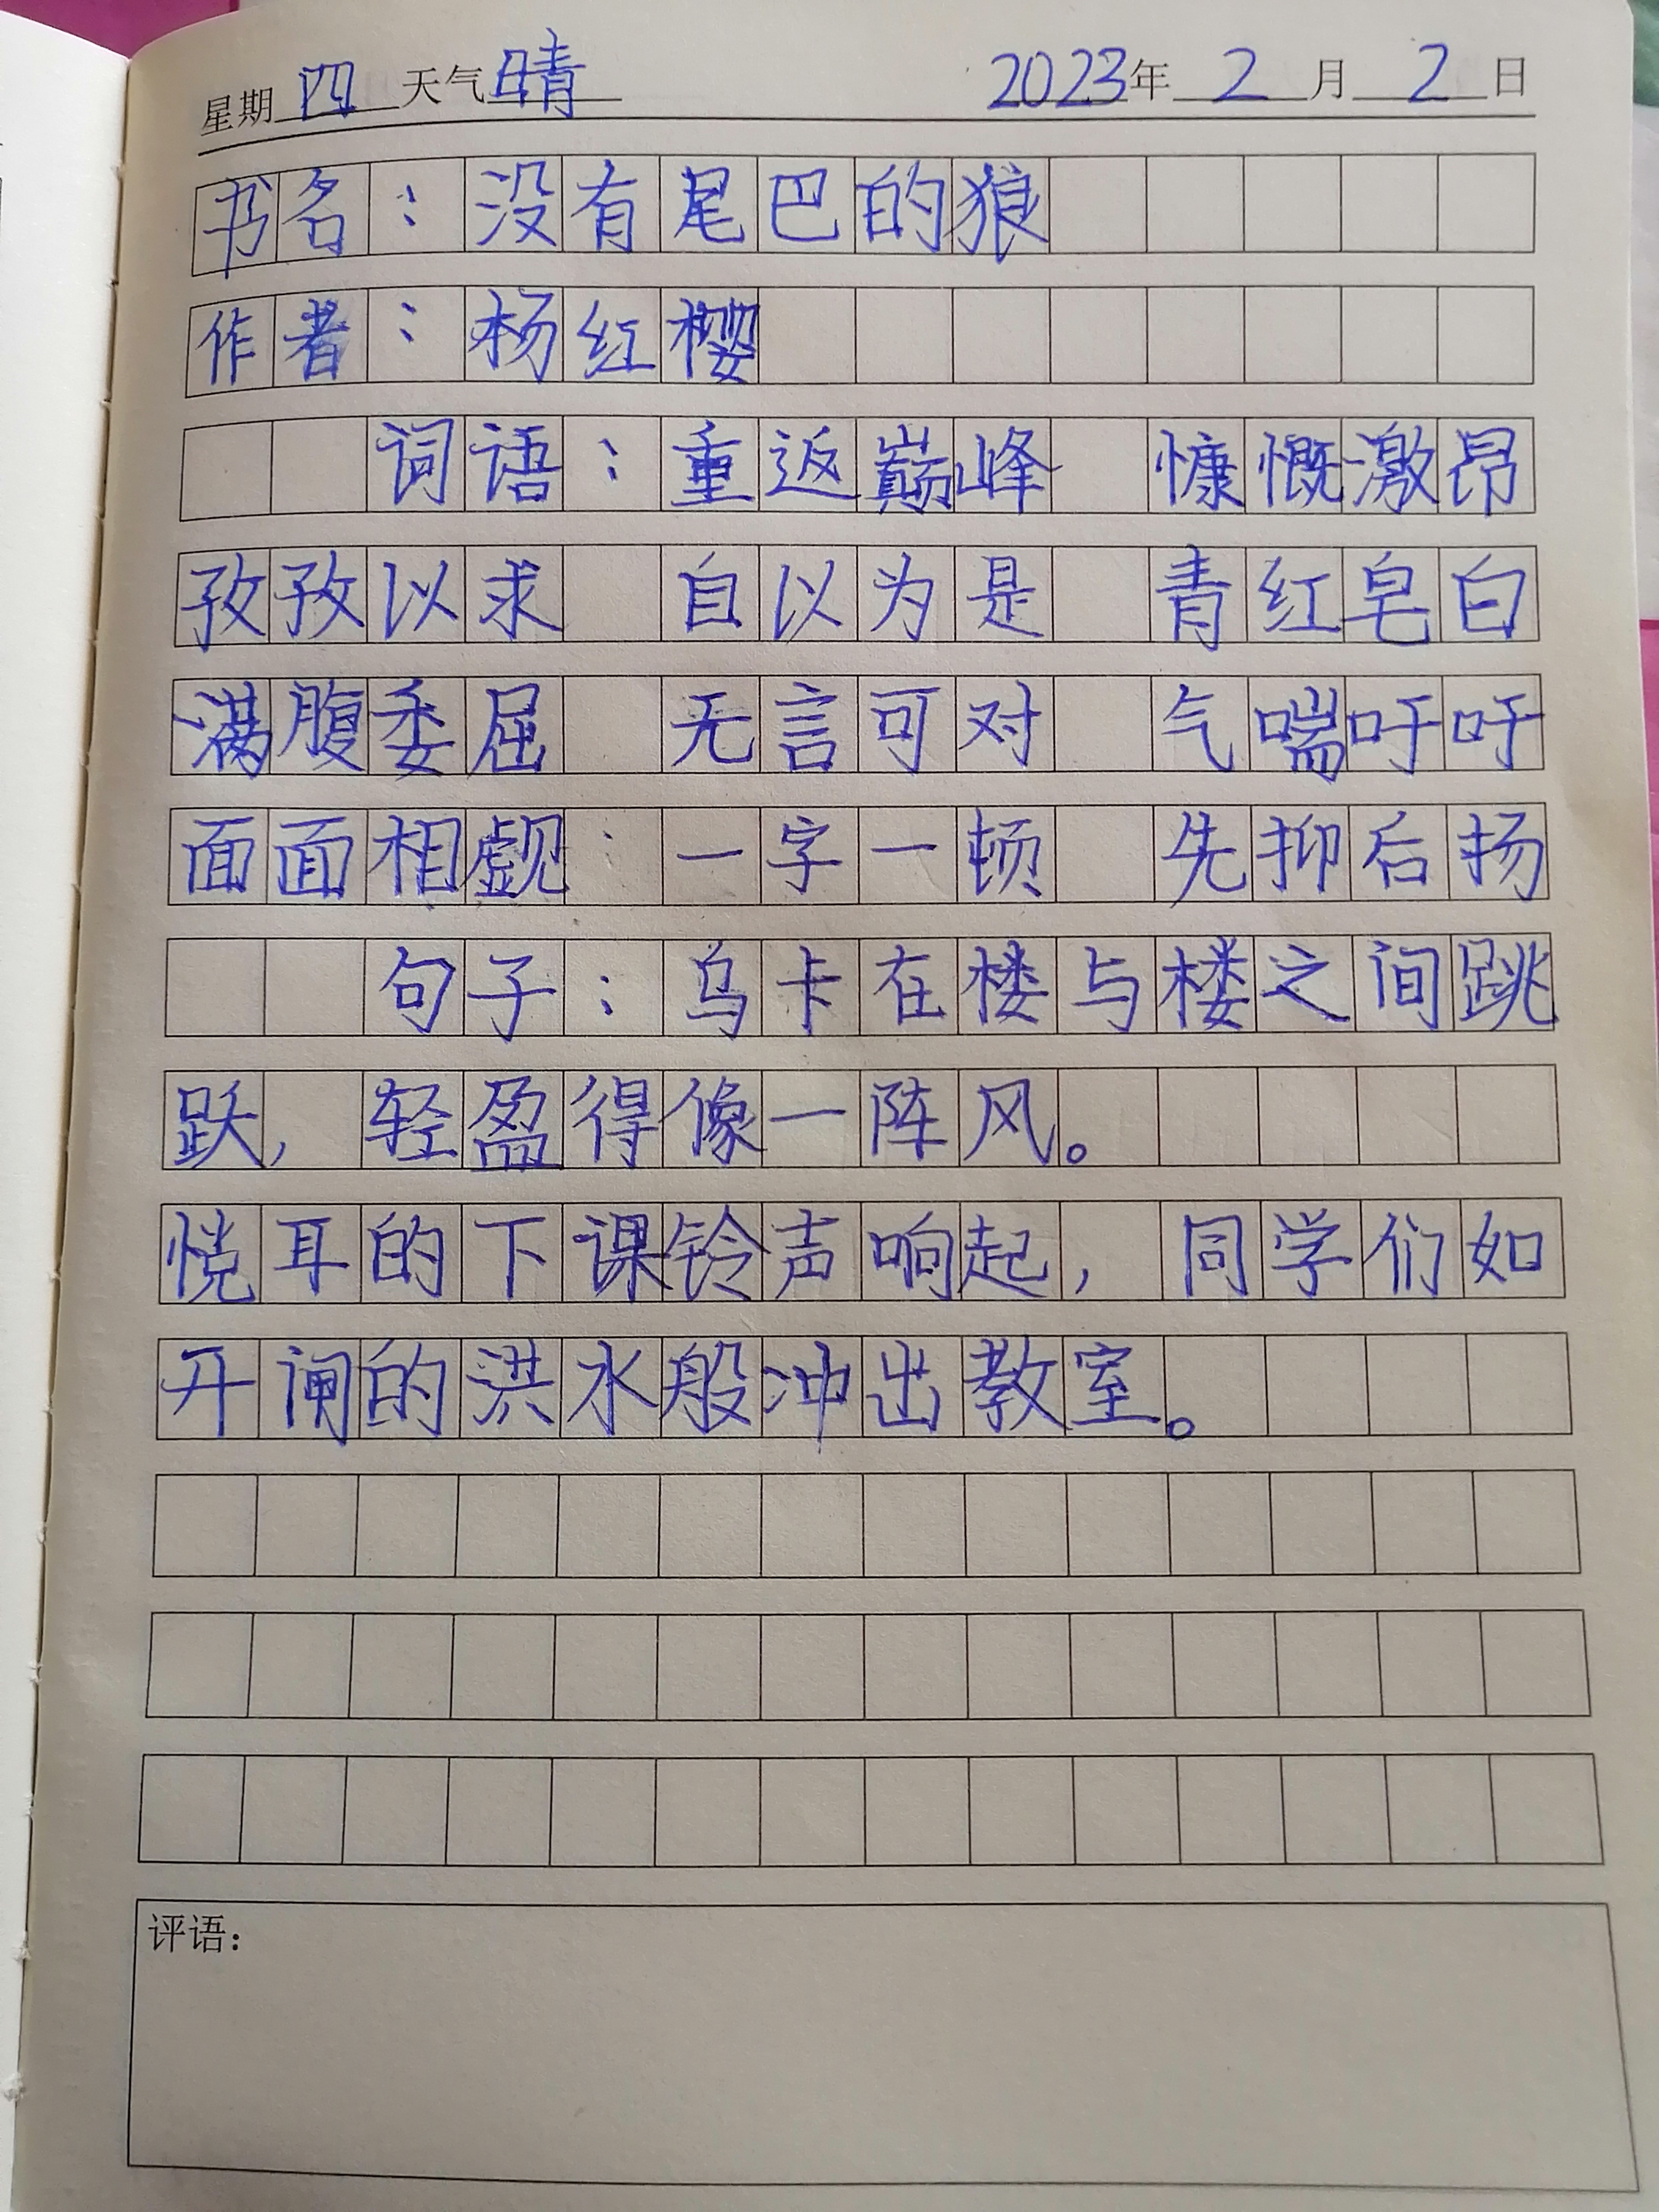 星期 四 天气 晴 2023年 2 月 2 日
书名：没有尾巴的狼
作者：杨红樱
词语：重返巅峰 慷慨激昂
孜孜以求 自以为是 青红皂白
满腹委屈 无言可对 气喘吁吁
面面相觑 一字一顿 先抑后扬
句子：乌卡在楼与楼之间跳
跃，轻盈得像一阵风。
悦耳的下课铃声响起，同学们如
开闸的洪水般冲出教室。
评语：